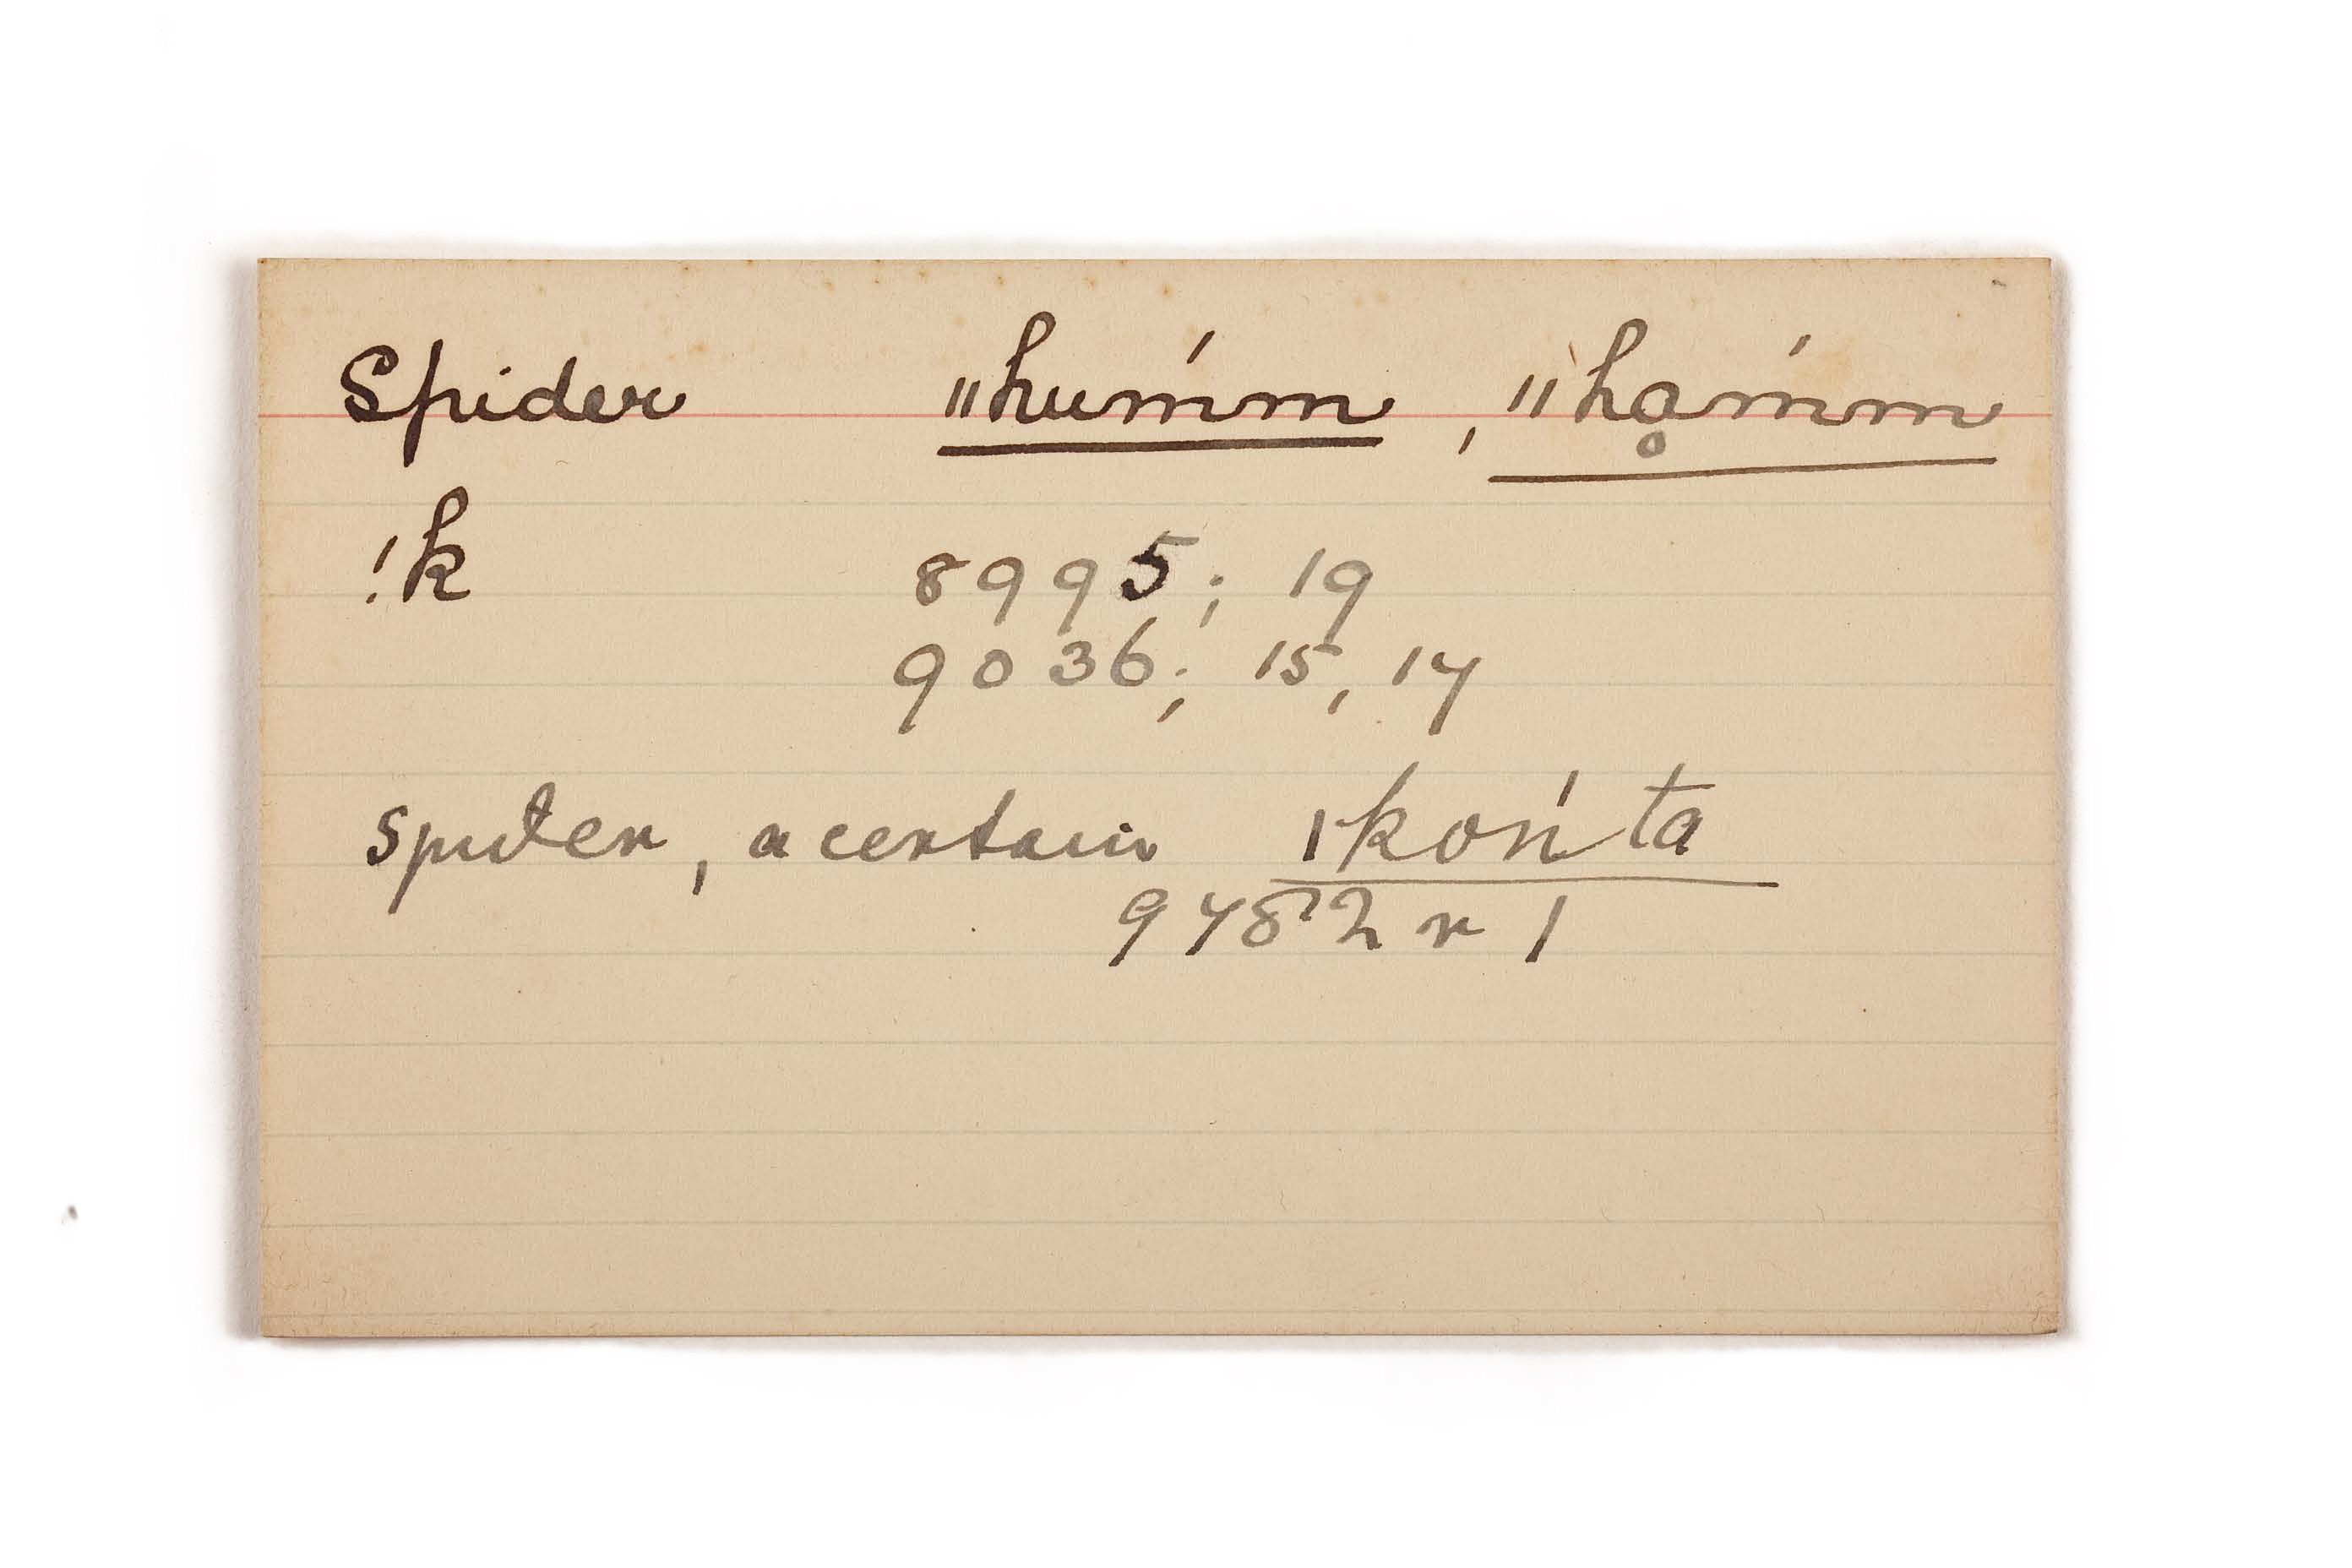 Spider ǁhum̍m, ǁhḁm̍m
!k 8995; 19
9036; 15, 17
Spider, a certain ǀkon̍ta
9782 r 1